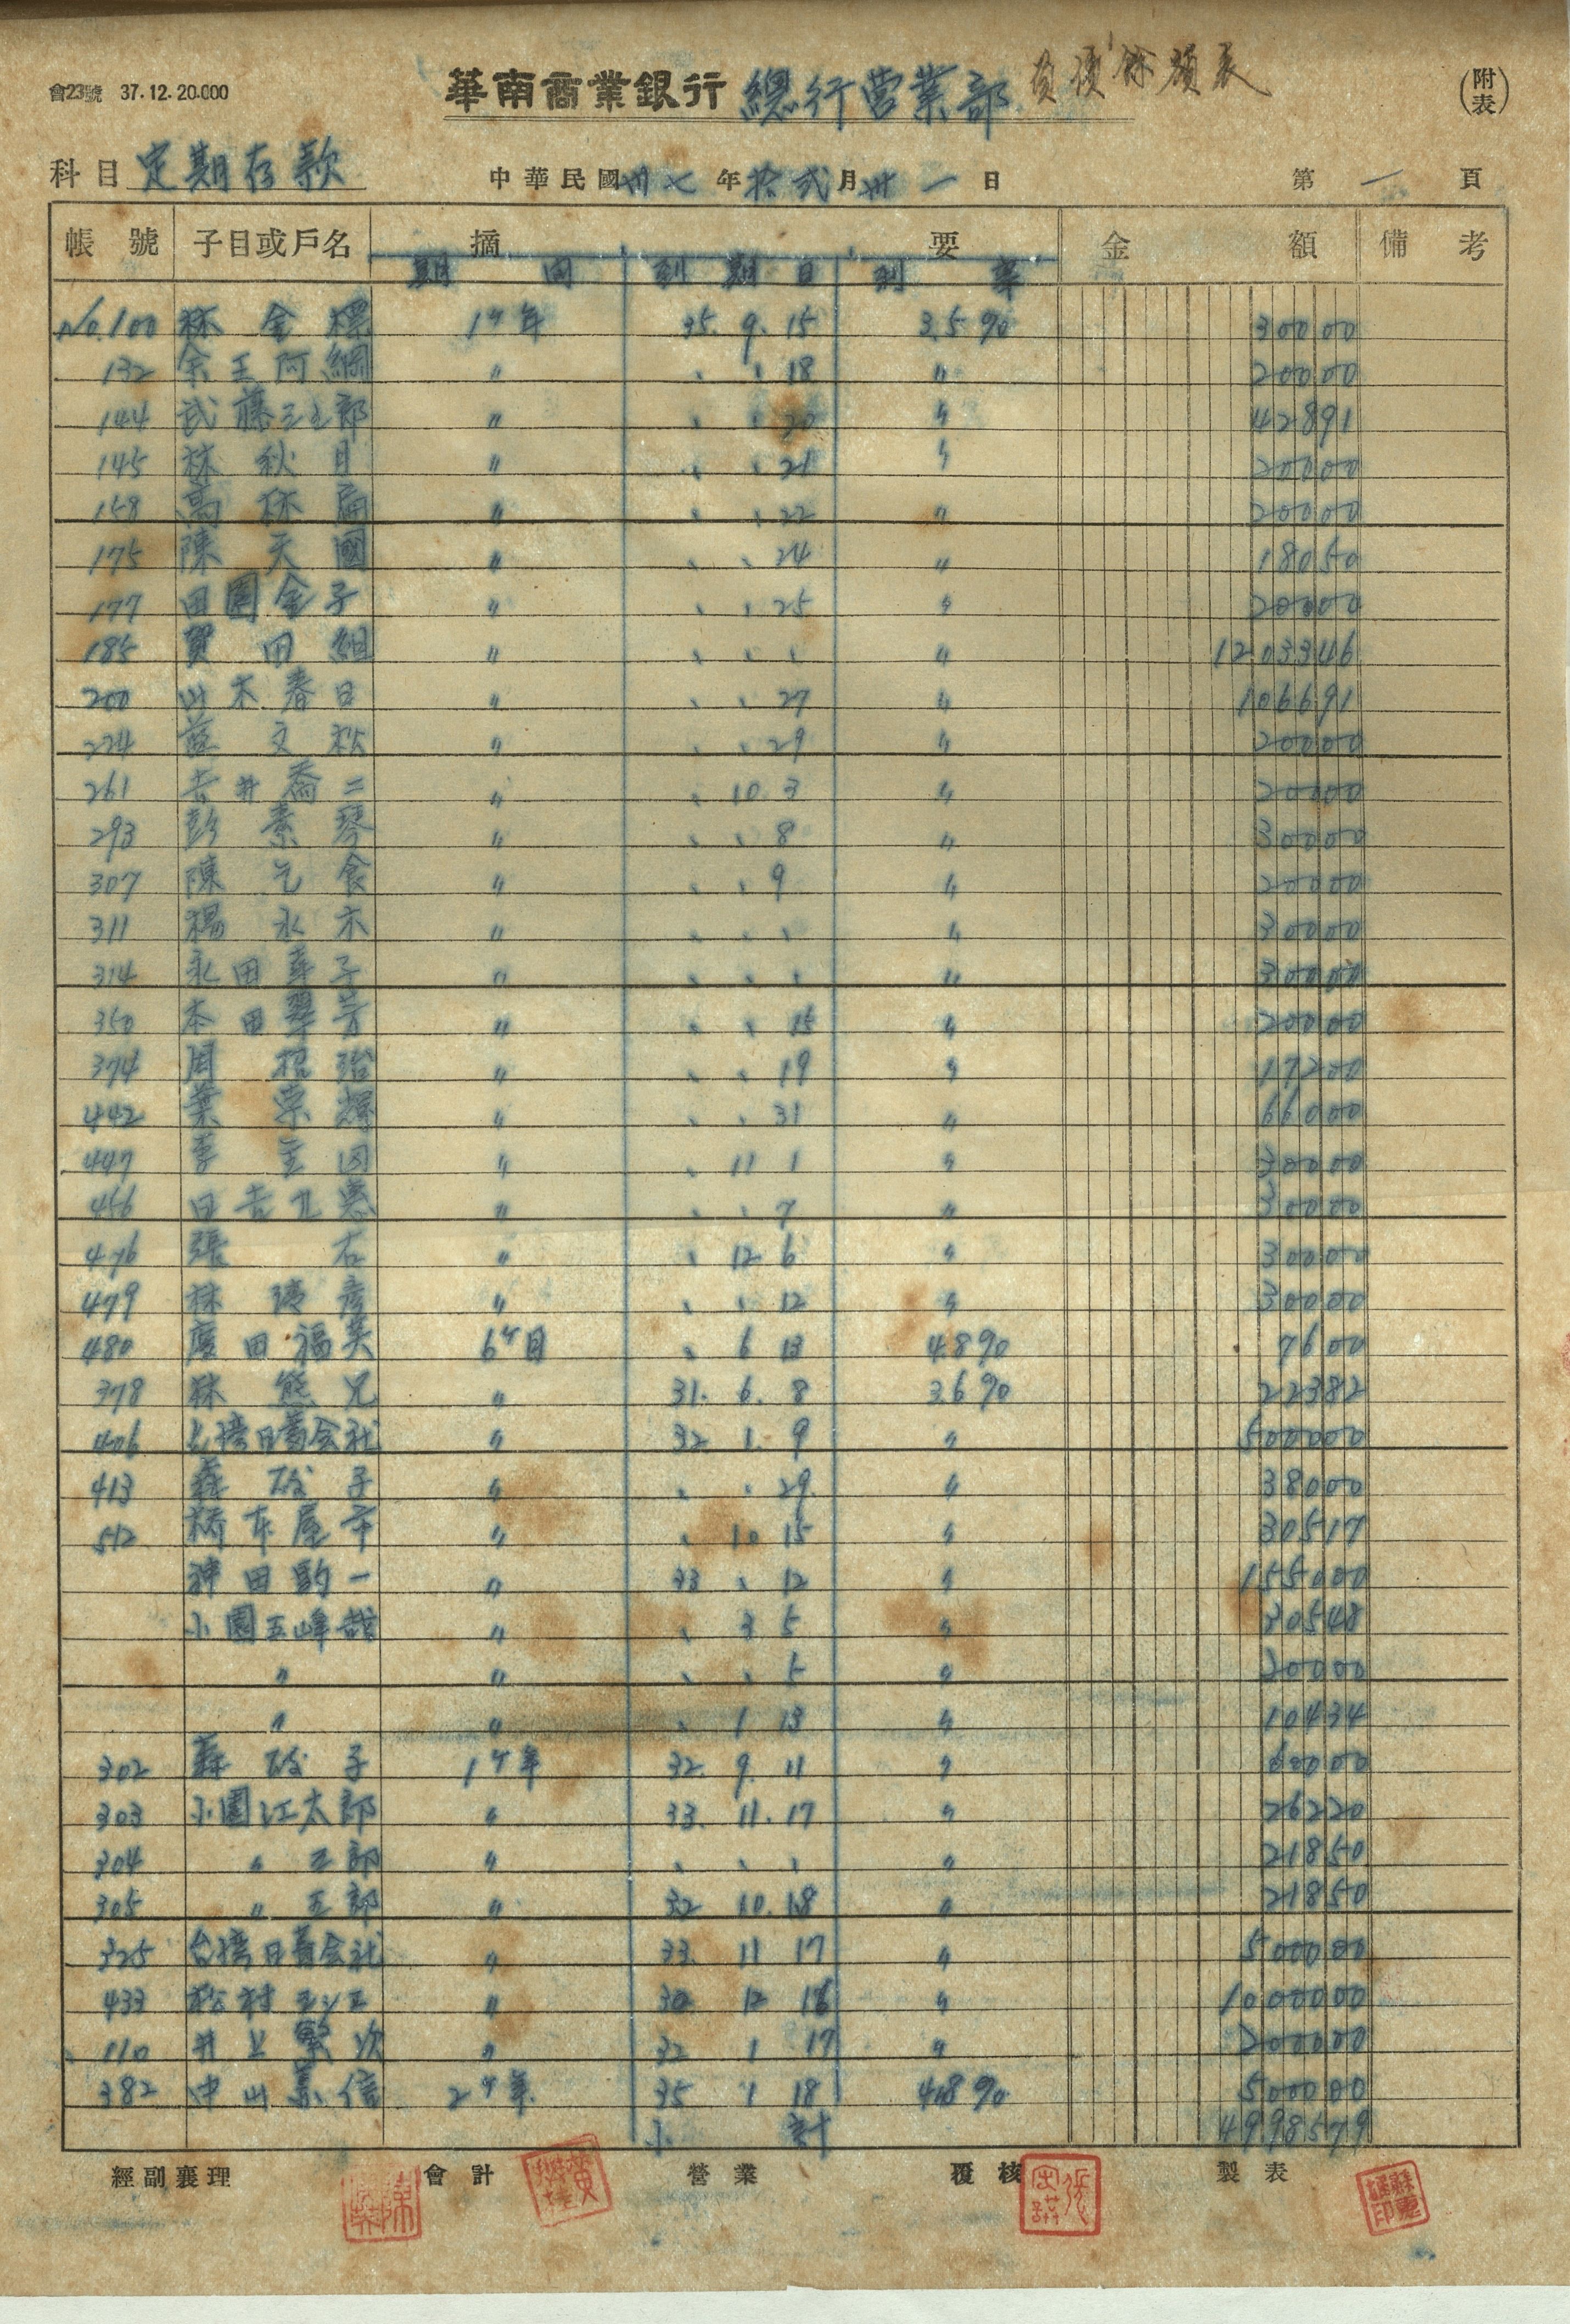 會23號 37.12.20.000
華南商業銀行 總行営業部 負債餘額表
(附表)
科目 定期存款 中華民國 卅七 年 拾弍 月 卅一 日 第 一 頁
帳號 子目或戶名 摘要 金額 備考
期間 到期日 利率
No.100 林金標 1ヶ年 35. 9. 15 3.5% 30000
132 余王阿綢 〃 、 、 18 〃 20000
144 武藤三七郎 〃 、 、 20 〃 42891
145 林秋日 〃 、 、 21 〃 20000
158 高林扁 〃 、 、 22 〃 20000
175 陳天國 〃 、 、 24 〃 18050
177 田園金子 〃 、 、 25 〃 20000
185 賀田組 〃 、 、 、 〃 1203346
200 山木春日 〃 、 、 27 〃 106691
224 文 〃 、 、 29 〃 20000
261 吉井喬二 〃 、 10 3 〃 20000
293 彭素琴 〃 、 、 8 〃 30000
307 陳乞食 〃 、 、 9 〃 20000
311 楊永木 〃 、 、 、 〃 30000
314 永田幸子 〃 、 、 、 〃 30000
350 本田翠芳 〃 、 、 15 〃 20000
374 周招治 〃 、 、 19 〃 17200
442 葉宗輝 〃 、 、 31 〃 66000
447 李 〃 、 11 1 〃 30000
456 日吉 惠 〃 、 、 7 〃 30000
476 張右 〃 、 12 6 〃 30000
479 林 彦 〃 、 、 12 〃 30000
480 廣田福英 6ヶ月 、 6 13 4.8% 7600
378 林熊兄 〃 31. 6. 8 3.6% 22382
406 台湾日蓄会社 〃 32 1. 9 〃 500000
413 森 子 〃 、 、 29. 〃 38000
512 橋本屋 〃 、 10 15 〃 30517
神田 一 〃 33 、 12 〃 155000
小園五峰哉 〃 、 3 5 〃 30548
〃 〃 、 、 5 〃 20000
〃 〃 、 1 13 〃 10434
302 森 子 1ヶ年 32. 9. 11 〃 60000
303 小園江太郎 〃 33. 11. 17 〃 26220
304 〃 三郎 〃 、 、 、 〃 21850
305 〃 五郎 〃 32 10. 18 〃 21850
325 台湾日蓄会社 〃 33. 11 17 〃 500000
433 松村 〃 30 12 16 〃 1000000
110 井上繁次 〃 32 1 17 〃 200000
382 中山 信 2ヶ年 35 1 18 4.8% 500000
小計 4998579
經副襄理 會計 營業 覆核 製表